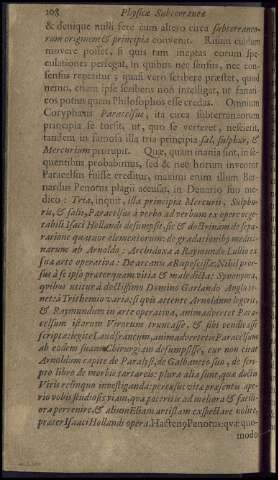 108 Physicæ Subterraneæ
& denique nulli fere cum altero circa subterraneo-
rum originem & principia convenit. Risum eisdem
movere posset, si quis tam ineptas eorum spe-
culationes perlegat, in quibus nec sensus, nec con-
sensus reperitur; quasi vero scribere præstet, quod
nemo, etiam ipse scribens non intelligat, ut fanati-
cos potius quam Philosophos esse credas. Omnium
Coryphæus Paracelsus, ita circa subterraneorum
principia se torsit, ut, quo se verteret, nesciens,
tandem in famosa illa tria principia sal, sulphur, &
Mercurium proruperit. Quæ, quam inania sint, in se-
quentibus probabimus, sed & nec horum inventor
Paracelsus fuisse creditur, maximi enim illum Ber-
nardus Penotus plagii accusat, in Denario suo me-
dico: Tria, inquit, illa principia Mercurii, Sulphu-
ris, & salis, Paracelsus à verbo ad verbum ex opere vege-
tabili Isaci Hollandi desumpsit, sic & doctrinam de sepa-
ratione quatuor elementorum: de gradationibus medici-
narum ab Arnoldo: Archidoxa à Raymundo Lullio ex
sua arte operativa: Denarium à Rupescissa: Nihil pror-
sus à se ipso præterquam vitia & maledicta. Synonyma,
quibus utitur à doctissimo Domino Garlando Anglo
net à Trithemio varia: si qui attente Arnoldum legerit,
& Raymundum in arte operativa, animadvertet Para-
celsum istorum Virorum truncasse, & sibi vendicasse
scripta: legite Lanfrancum, animadvertetis Paracelsum
ab eodem suam Chirurgiam desumpsisse, cur non citat
Arnoldum capite de Paralysi, de Galbaneto suo, de scri-
pto libro de morbis tartareis: plura alia sunt, quæ doctis
Viris relinquo investiganda: per
vobis studiosis viam, qua poteritis ad meliora & facili-
ora pervenire, & alium Eliam artistam exspectare nolite,
præter Isaaci Hollandi opera. Hactenus Penotus: quæ quo-
modo